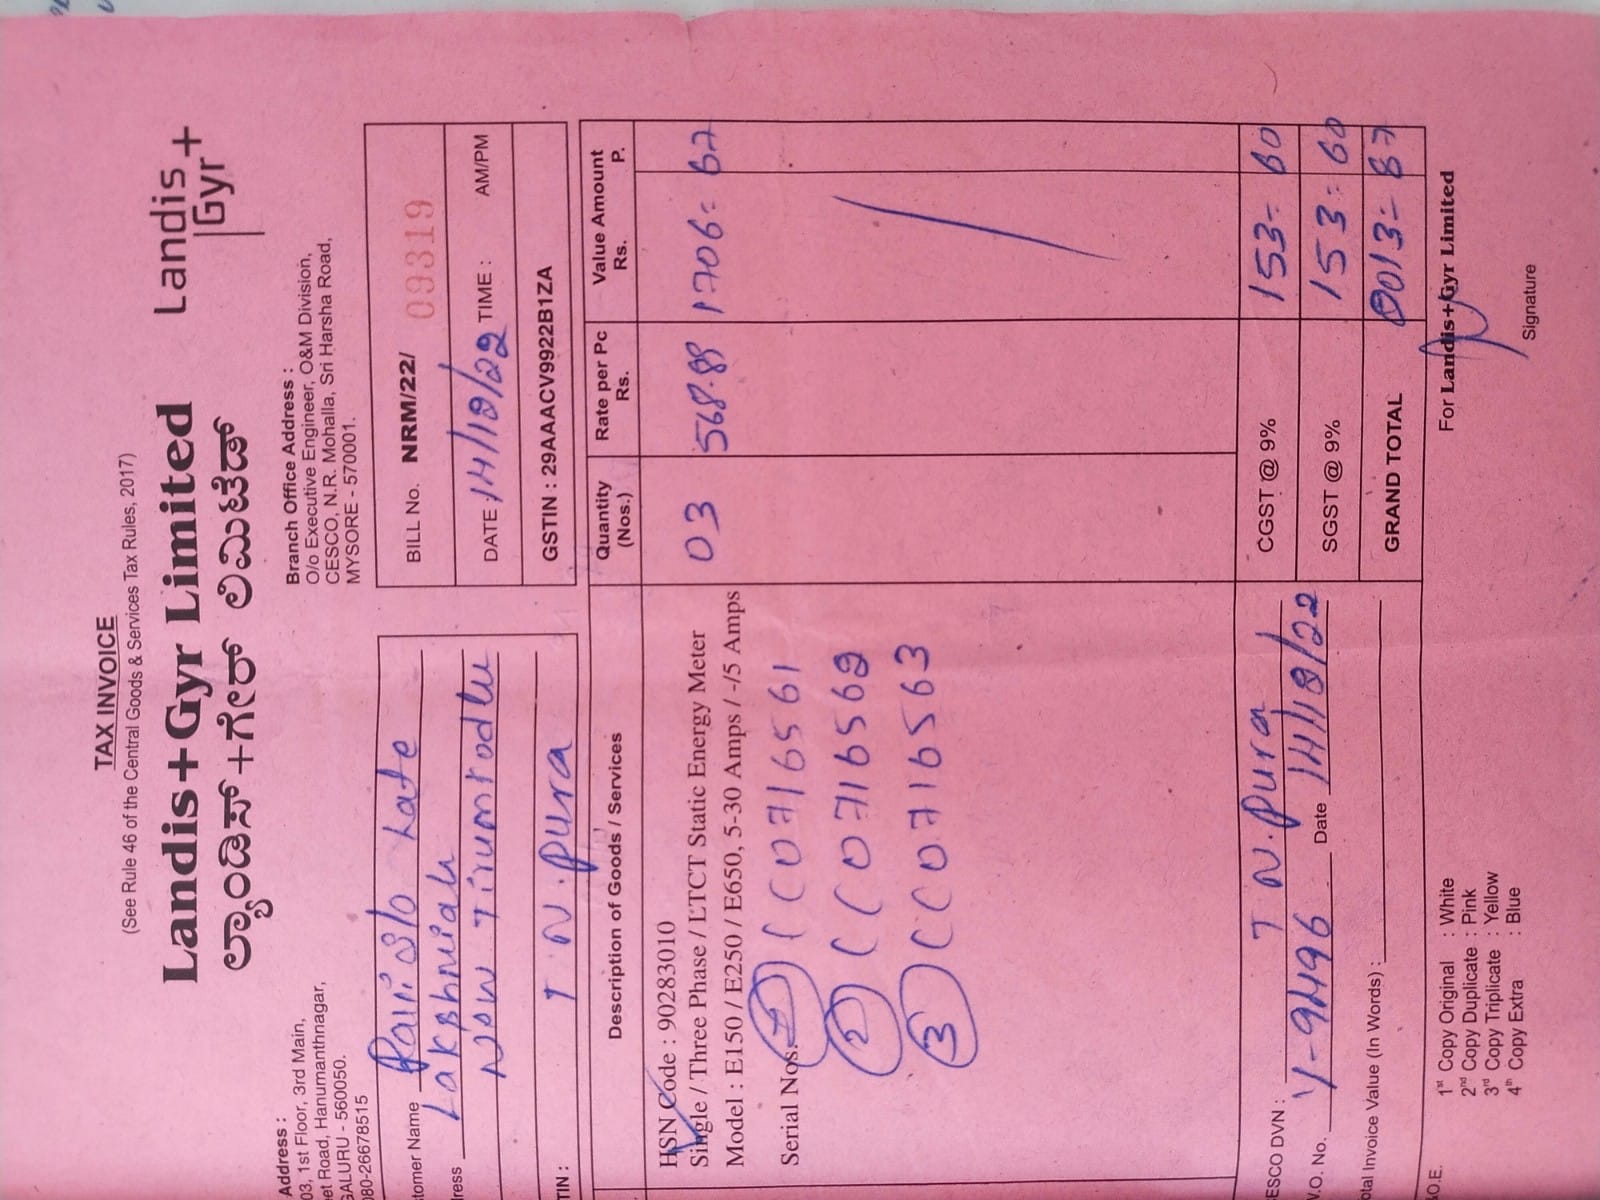 TAX INVOICE
(See Rule 46 of the Central Goods & Services Tax Rules, 2017)
Landis+Gyr Limited
Landis
Gyr+
ಲ್ಯಾಂಡಿಸ್+ಗೇರ್ ಲಿಮಿಟೆಡ್
Address :
03, 1st Floor, 3rd Main,
et Road, Hanumanthnagar,
GALURU - 560050.
080-26678515
Branch Office Address :
O/o Executive Engineer, O&M Division,
CESCO, N.R. Mohalla, Sri Harsha Road,
MYSORE - 570001.
tomer Name Rani W/o Late
ress Lakshmiah
New Tirumkodlu
TIN : T N.pura
BILL No. NRM/22/ 09319
DATE : 14/12/22 TIME : AM/PM
GSTIN : 29AAACV9922B1ZA
Description of Goods / Services
Quantity (Nos.)
Rate per Pc Rs.
Value Amount Rs. P.
HSN Code : 90283010
Single / Three Phase / LTCT Static Energy Meter
Model : E150 / E250 / E650, 5-30 Amps / -/5 Amps
03 568.88 1706=62
Serial Nos. 1 CC0716561
2 CC0716562
3 CC0716563
ESCO DVN : T N.pura
V.O. No. Y-92496 Date 14/12/22
otal Invoice Value (In Words) :
CGST @ 9% 153=60
SGST @ 9% 153=60
GRAND TOTAL 2013=87
.O.E.
1st Copy Original : White
2nd Copy Duplicate : Pink
3rd Copy Triplicate : Yellow
4th Copy Extra : Blue
For Landis+Gyr Limited
Signature